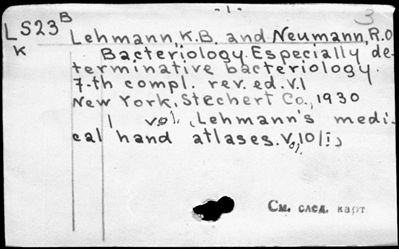 -1-
3
L523 B
K
Lehmann, K.B. and Neumann, R.O.
Bacteriology. Especially de-
terminative bacteriology.
7-th compl. rev. ed. V.1
New York, Stechert Co., 1930
1 vol. (Lehmann's medi-
cal hand atlases. Vol. 10/i)
См. след. карт